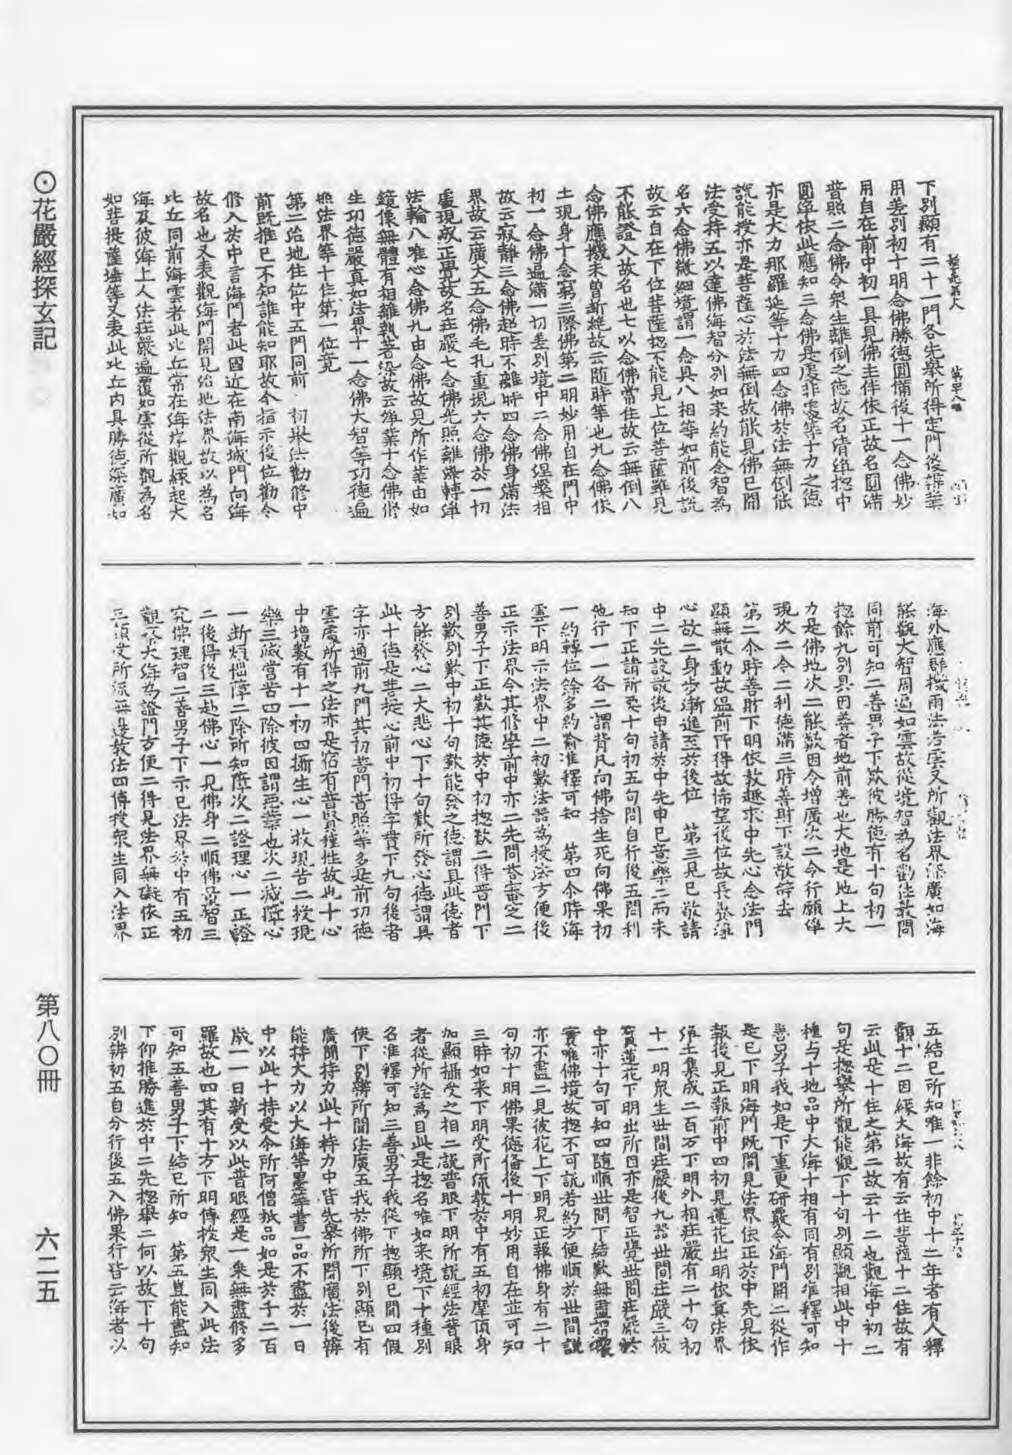 下別顯有二十一門各先舉所得定門後辨業
用差別初十明念佛勝德圓備後十一念佛妙
用自在前中初一具見佛主伴依正故名圓滿
普照二念佛令眾生離倒之德故名清淨
圓淨依此應知三念佛是處非處等十力之德
亦是大力那羅延等十力四念佛於法無倒依
說能授亦是菩薩心於法無倒故能見佛已聞
法受持五以達佛海智分別如來約能念智為
名六念佛微細境謂一念具八相等如前後說
故云自在下位菩薩故不能見上位菩薩雖見
不能證入故名也七以念佛常住故云無倒八
念佛應機未曾斷絕故云隨時等也九念佛依
土現身十念窮三際佛第二明妙用自在門中
初一念佛遍滿一切差別境中二念佛涅槃相
故云寂靜三念佛起時不離時四念佛身滿法
界故云廣大五念佛毛孔重現六念佛於一切
處現成正覺故名莊嚴七念佛光照離降轉淨
法輪八唯心念佛九由念佛故見所作業由如
鏡像無體有相離執著沒故云淨業十念佛修
生功德嚴真如法界十一念佛大智等功德遍
照法界等十住第一位竟
第二治地住位中五門同前 初舉法勸修中
前既推已不知誰能知耶故今指示後位勸令
修入於中言海門者此國近在南海城門向海
故名也又表觀海門開見治地法界故以為名
比丘同前海雲者此比丘常在海岸觀緣起大
海及彼海上人法莊嚴遍覆如雲從所觀為名
如菩提薩埵等又表此比丘內具勝德深廣如
海外應群機雨法若雲又所觀法界深廣如海
能觀大智周遍如雲故從境智為名勸往敬問
同前可知二善男子下歎彼勝德有十句初一
總餘九別具因善者地前善也大地是地上大
力是佛地次二能歎因令增廣次二令行願倍
現次二令二利德滿三時善財下設敬辭去
第二个時善財下明依教趣求中先心念法門
顯無散動故溫前所得故怖望後位故長養淨
心故二身步漸進至於後位 第三見已敬請
中二先設敬後申請於中先申已意樂二而未
知下正請所要十句初五句問自行後五問利
他行一一各二謂背凡向佛捨生死向佛果初
一約轉位餘多約喻准釋可知 第四个時海
雲下明示法界中二初歎法器為授法方便後
正示法界令其修學前中亦二先問答審定二
善男子下正歎其德於中初總歎二得普門下
別歎別歎中初十句歎能發之德謂具此德者
方能發心二大悲心下十句歎所發心德謂具
此十德是菩提心前中初得字貫下九句後者
字亦通前九門其初普門普照等多是前功德
雲處所得之法亦是宿有普賢種性故也十心
中增數有十一初四攝生心一救現苦二授現
樂三滅當苦四除彼因謂惡業也次二滅障心
一斷煩惱障二除所知障次二證理心一正證
二後得後三赴佛心一見佛身二順佛意智三
究佛理智二善男子下示已法界於中有五初
觀察大海為證門方便二得見法界無礙依正
三領受所流無邊教法四傳授眾生同入法界
五結已所知唯一非餘初中十二年者有人釋
觀十二因緣大海故有云住菩薩十二住故有
云此是十住之第二故云十二也觀海中初二
句是總舉所觀能觀下十句別顯觀相此中十
種与十地品中大海十相有同有別准釋可知
善男子我如是下重更研覈令海門開二從作
是已下明海門既開見法界依正於中先見依
報後見正報前中四初見蓮花出明依真法界
張土集成二百万下明外相莊嚴有二十句初
十一明眾生世間莊嚴後九器世間莊嚴三彼
寶蓮花下明出所因亦是智正覺世間莊嚴於
中亦十句可知四隨順世間下結歎無盡謂
實唯佛境故總不可說若約方便順於世間說
亦不盡二見彼花上下明見正報佛身有二十
句初十明佛果德備後十明妙用自在並可知
三時如來下明受所流教於中有五初摩頂身
加顯攝受之相二說普眼下明所說經法普眼
者從所詮為目此是總名唯如來境下十種別
名准釋可知三善男子我從下總顯已聞四假
使下別辨所聞法廣五我於佛所下別顯已有
廣聞持力此十持力中皆先舉所聞聞法後辨
能持大力以大海等墨等書一品不盡於一日
中以此十持受令所阿僧祇品如是於千二百
歲一一日新受以此普眼經是一乘無盡修多
羅故也四其有十方下明傳授眾生同入此法
可知五善男子下結已所知 第五豈能盡知
下仰推勝進於中二先總舉二何以故下十句
別辨初五自分行後五入佛果行皆云海者以
⊙花嚴經探玄記
第八〇冊
六二五